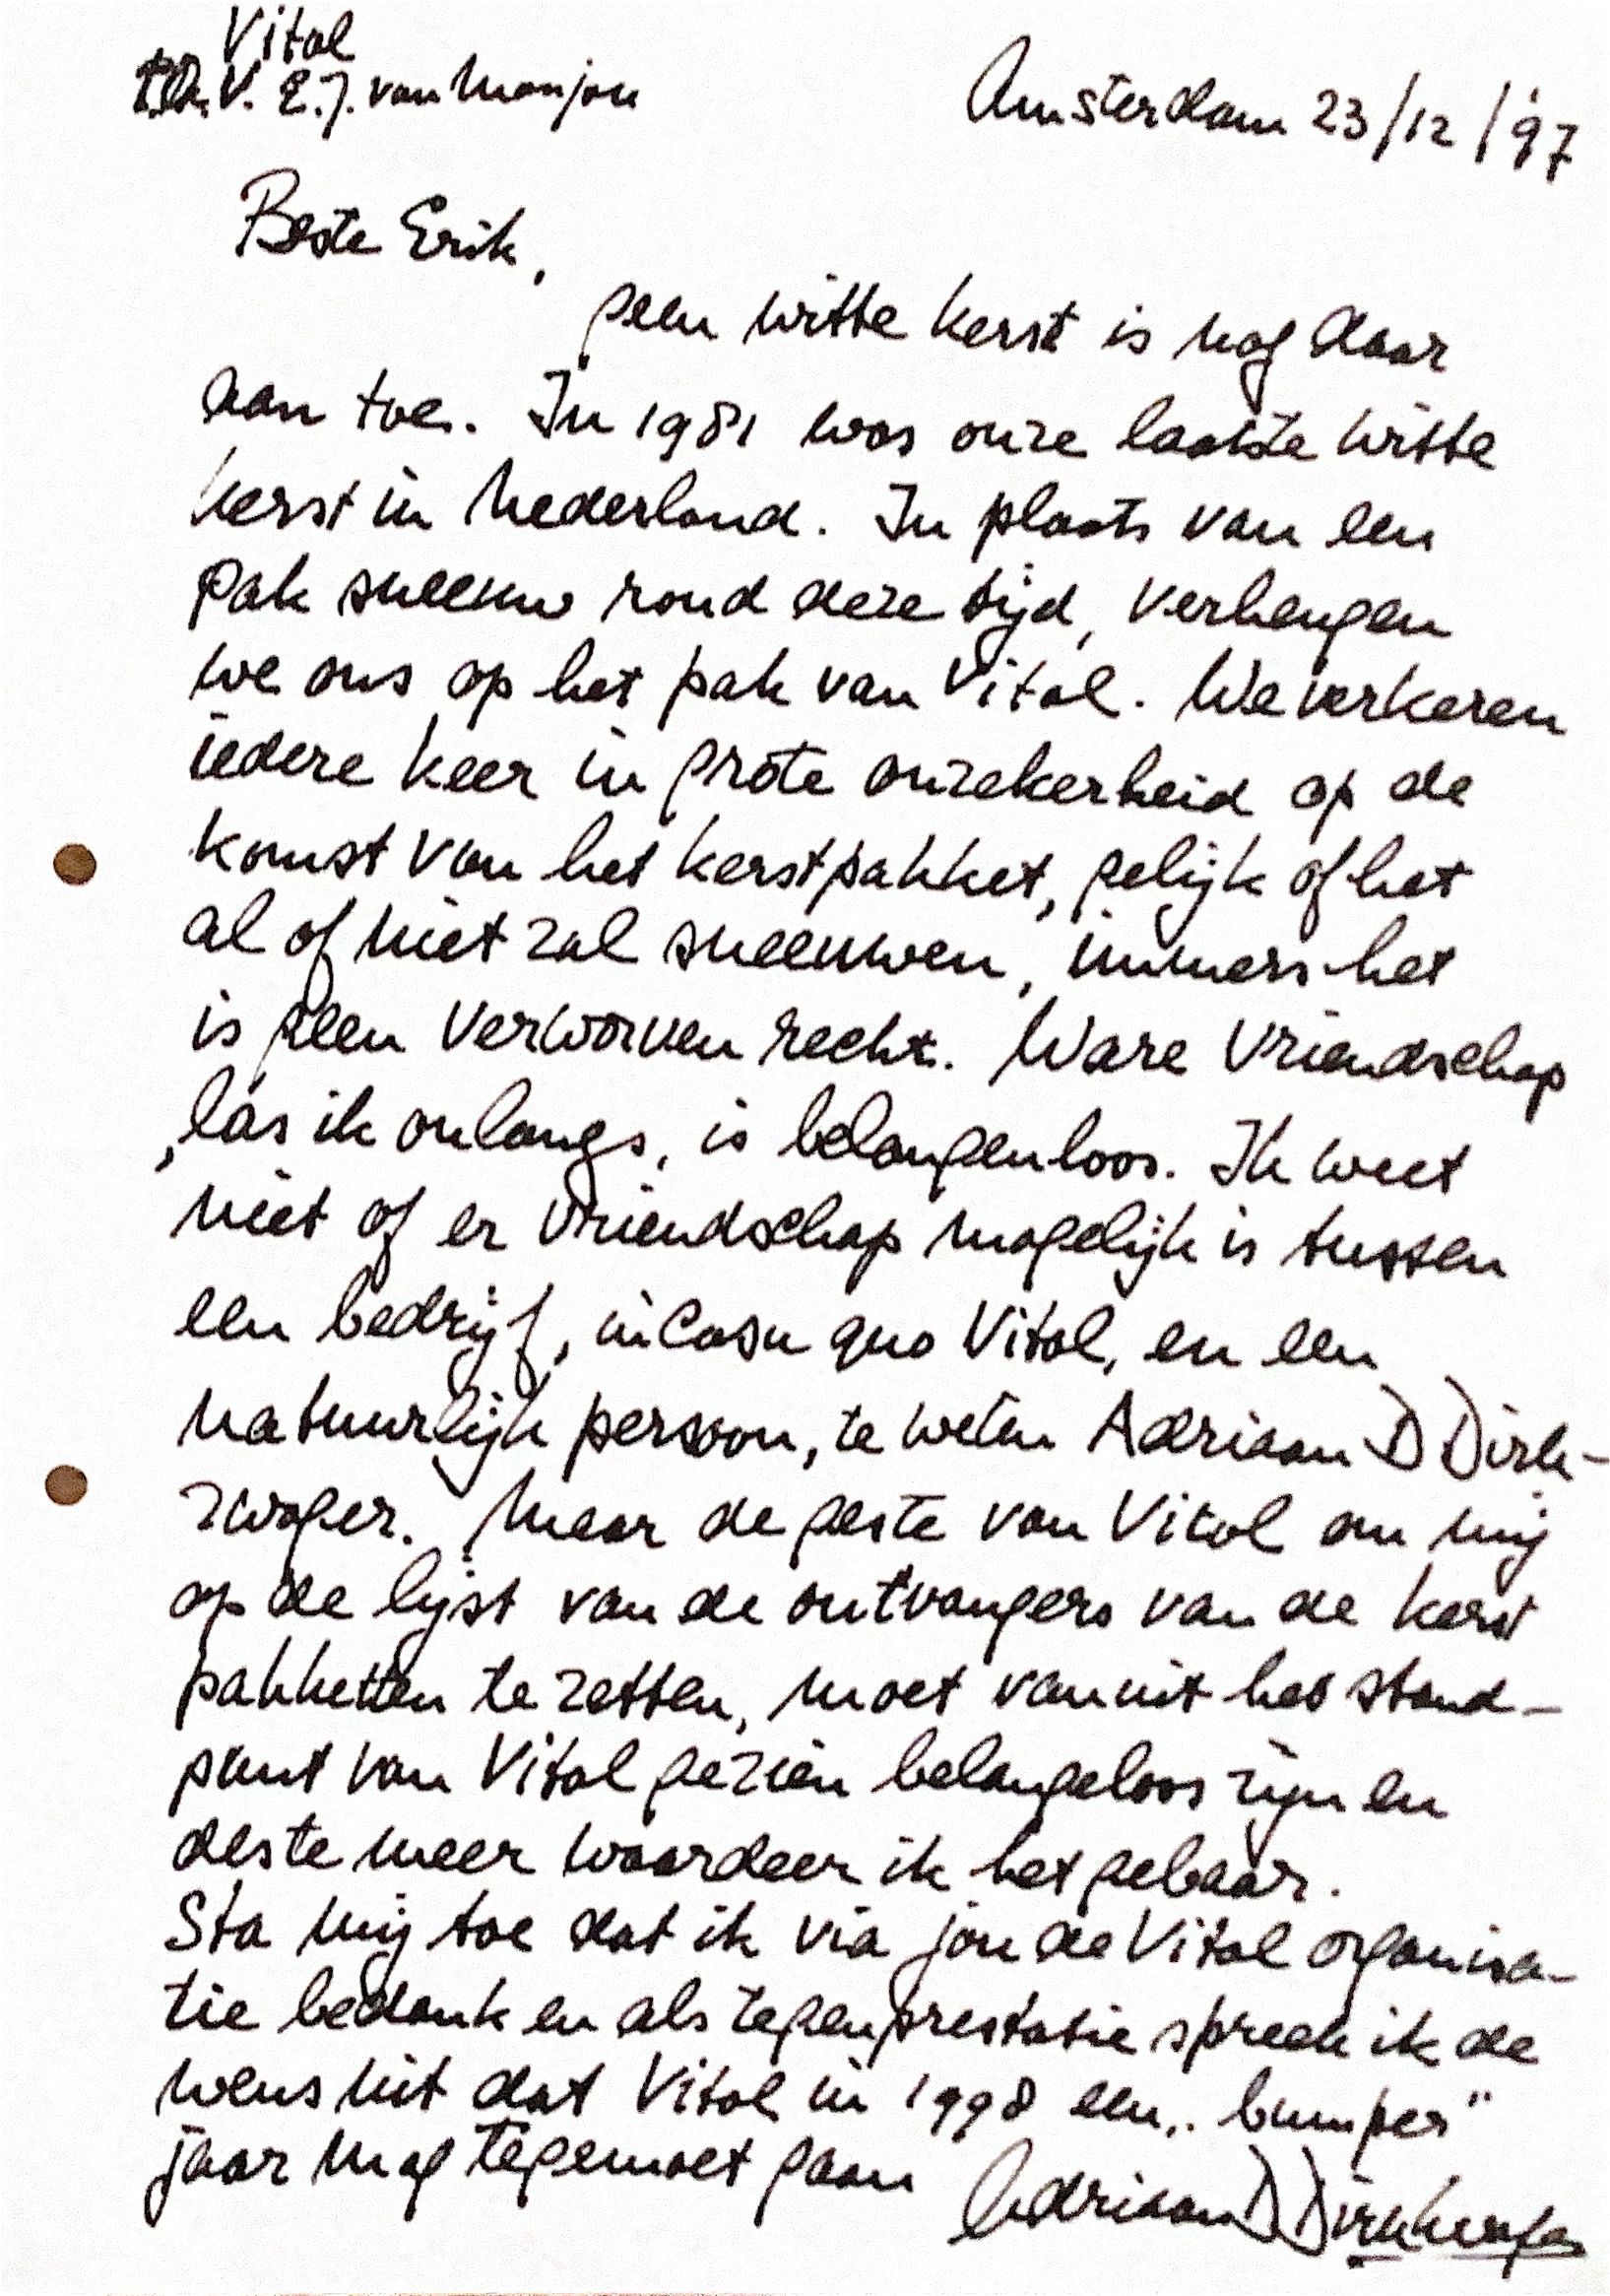 Vitol
t.a.v. E.J. van Manjou
Amsterdam 23/12/'97
Beste Erik,
geen witte kerst is nog daar
aan toe. In 1981 was onze laatste witte
kerst in Nederland. In plaats van een
pak sneeuw rond deze tijd, verheugen
we ons op het pak van Vitol. We verkeren
iedere keer in grote onzekerheid op de
komst van het kerstpakket, gelijk of het
al of niet zal sneeuwen, immers het
is geen verworven recht. Ware vriendschap
, las ik onlangs, is belangenloos. Ik weet
niet of er vriendschap mogelijk is tussen
een bedrijf, in casu quo Vitol, en een
natuurlijk persoon, te weten Adriaan D Dirk-
zwager. Maar de geste van Vitol om mij
op de lijst van de ontvangers van de kerst
pakketten te zetten, moet vanuit het stand-
punt van Vitol gezien belangeloos zijn en
deste meer waardeer ik het gebaar.
Sta mij toe dat ik via jou de Vitol organisa-
tie bedank en als tegenprestatie spreek ik de
wens uit dat Vitol in 1998 een „bumper"
jaar mag tegemoet gaan
Adriaan D Dirkzwager